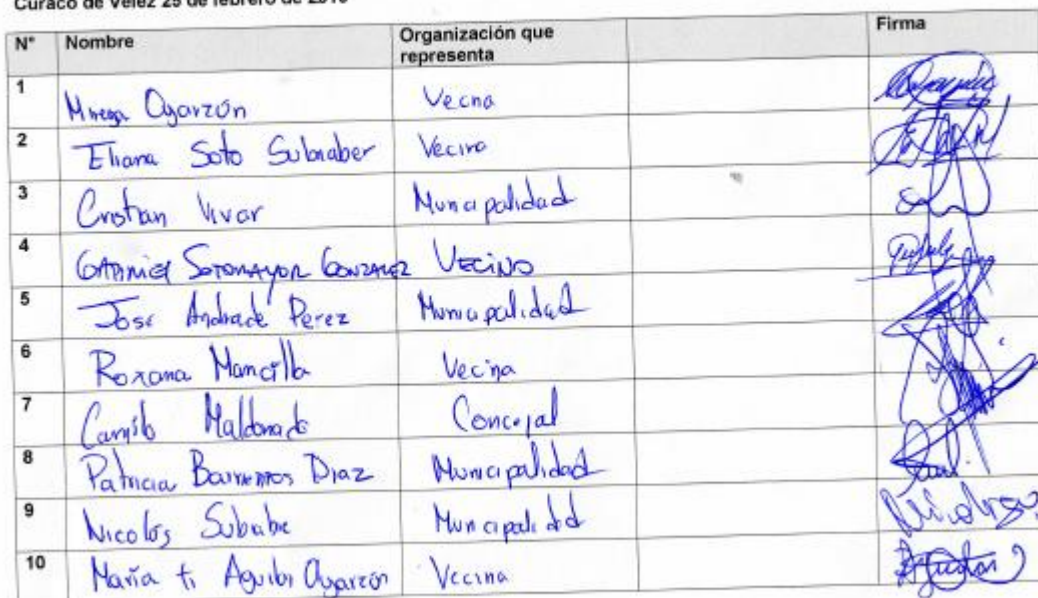 Curaco de Vélez 25 de febrero de
N° Nombre Organización que representa Firma
1 Oyarzún Vecna
2 Eliana Soto Subiaber Vecina
3 Cristian Vivar Municipalidad
4 Gabriel SOTOMAYOR GONZALEZ VECINO
5 José Andrade Perez Municipalidad
6 Roxana Mancilla Vecina
7 Camilo Maldonado Concejal
8 Patricia Barrientos Diaz Municipalidad
9 Nicolás Municipalidad
10 María Oyarzón Vecina